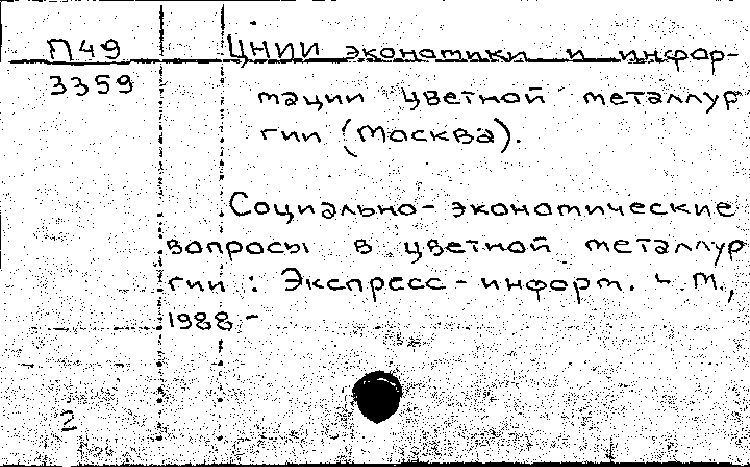 П49 ЦНИИ экономики и инфор-
3359
мации цветной металлур
гии (Москва).
Социально-экономические
вопросы в цветной металлур
гии : Экспресс-информ. - М.,
1988 -
2